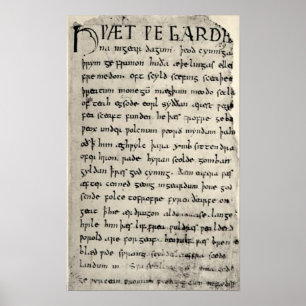 HǷÆT ǷE GARDE
na in geardagum þeod cyninga
þrym ge frunon huða æþelingas elle
fremedon. oft scyld scefing sceaþe
þreatum monegū mægþum meodo setla
of teah egsode eorl syððan ærest ƿear
fea sceaft funden he þæs frofre geba
ƿeox under ƿolcnum ƿeorð myndum þah
oð ꝥ him æghƿylc þara ymb sittendra
ofer hron rade hyran scolde gomban
gyldan ꝥ ƿæs god cyning. ðæm eafera ƿæs
æfter cenned geong in geardum þone god
sende folce tofrofre fyren ðearfe on
geat ꝥ hie ær drugon aldor ase. lange
hƿile him þæs lif frea ƿuldres ƿealdend
ƿorold are for geaf. beoƿulf ƿæs breme
blæd ƿide sprang scyldes eafera scede
landum in.